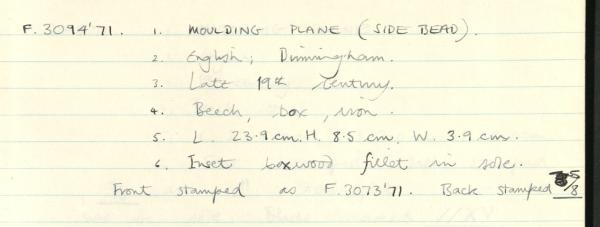 F.3094'71. 1. MOULDING PLANE (SIDE BEAD).
2. English; Birmingham.
3. Late 19th Century.
4. Beech, box, iron.
5. L. 23.9 cm. H. 8.5 cm. W. 3.9 cm.
6. Inset boxwood fillet in sole.
Front stamped as F.3073'71. Back stamped 5/8